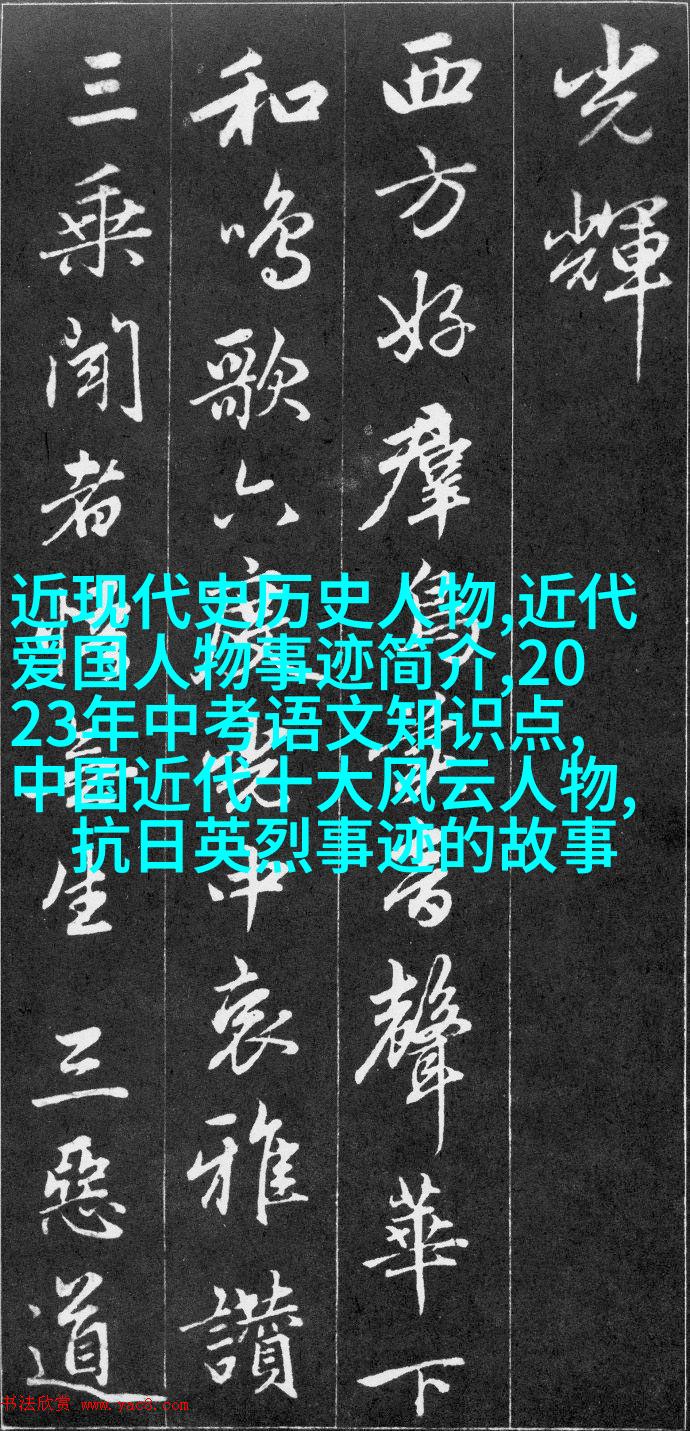 光輝
西方好羣鳥音聲華下
和鳴歌六中哀雅讚
三乘聞者生三惡道
近现代史历史人物,近代
爱国人物事迹简介,20
23年中考语文知识点,
中国近代十大风云人物,
抗日英烈事迹的故事
书法欣赏 www.yac8.com